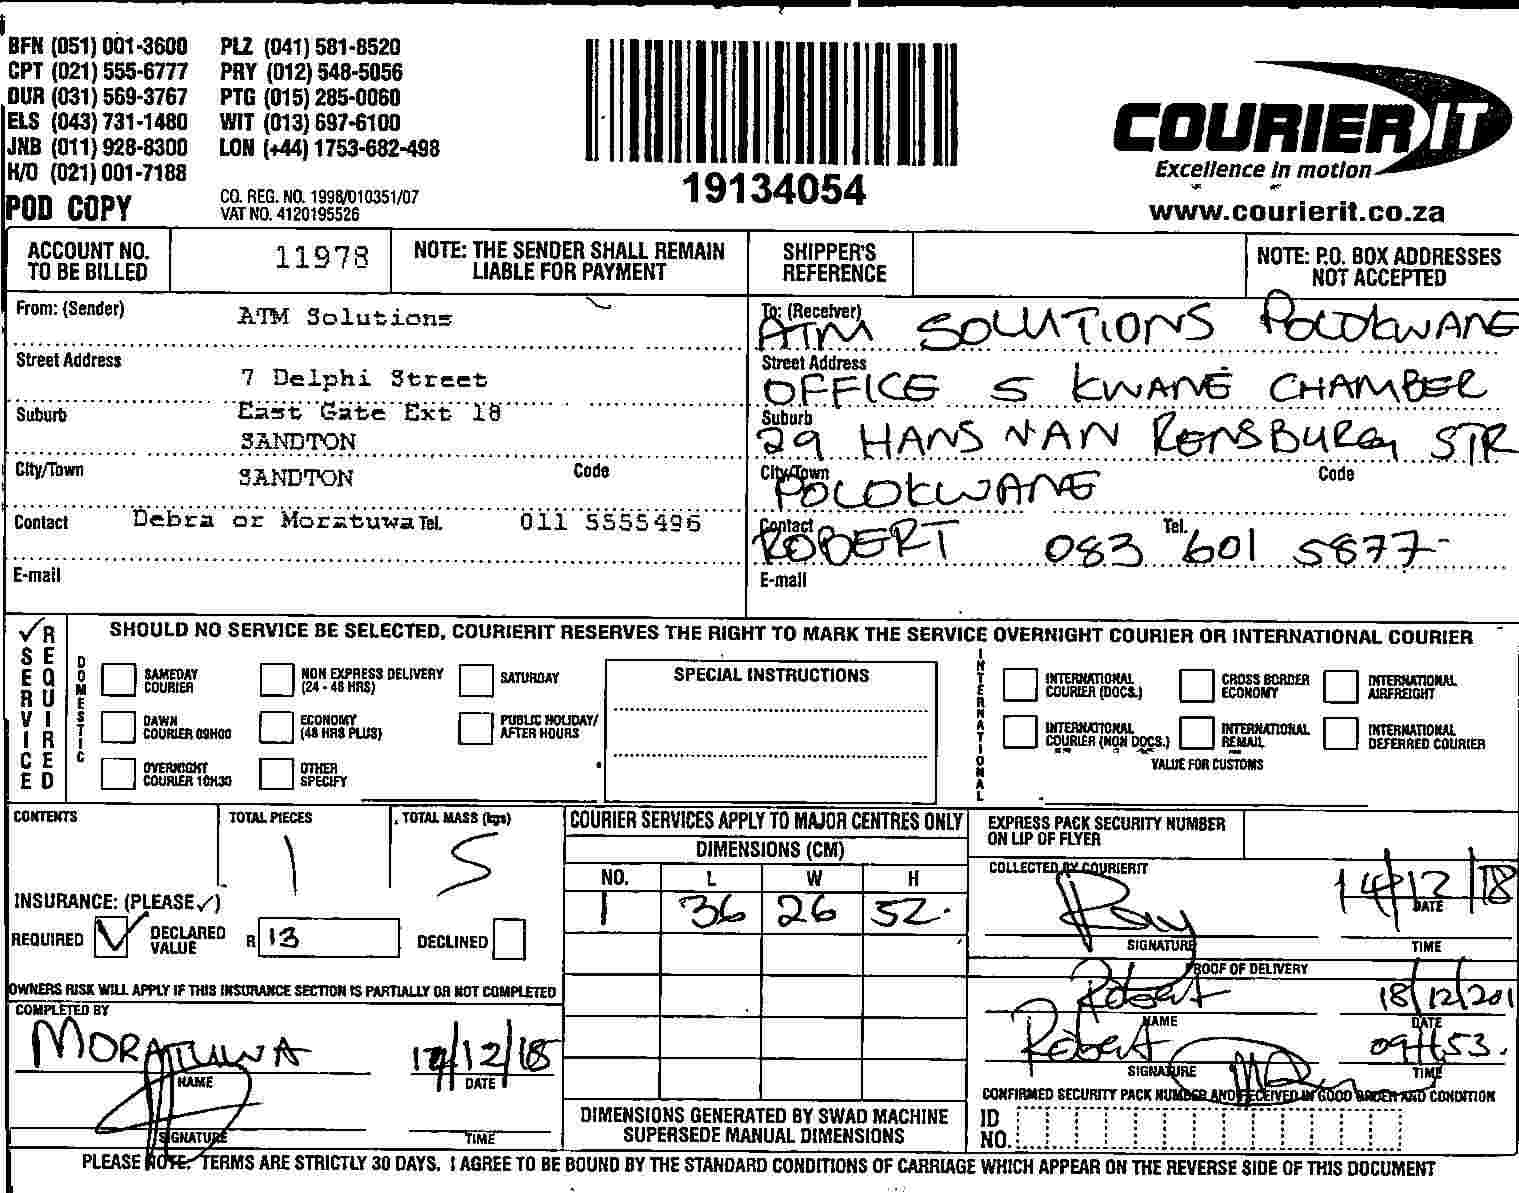 BFN (051) 001-3600 PLZ (041) 581-8520
CPT (021) 555-6777 PRY (012) 548-5056
DUR (031) 569-3767 PTG (015) 285-0060
ELS (043) 731-1480 WIT (013) 697-6100
JNB (011) 928-8300 LON (+44) 1753-682-498
H/O (021) 001-7188
POD COPY
CO. REG. NO. 1998/010351/07
VAT NO. 4120195526
19134054
COURIER IT
Excellence in motion
www.courierit.co.za
ACCOUNT NO. TO BE BILLED 11978
NOTE: THE SENDER SHALL REMAIN LIABLE FOR PAYMENT
SHIPPER'S REFERENCE
NOTE: P.O. BOX ADDRESSES NOT ACCEPTED
From: (Sender) ATM Solutions
Street Address 7 Delphi Street
Suburb East Gate Ext 18
SANDTON
City/Town SANDTON Code
Contact Debra or Moratuwa Tel. 011 5555496
E-mail
To: (Receiver) ATM SOLUTIONS POLOKWANE
Street Address OFFICE 5 KWANE CHAMBER
Suburb 29 HANS VAN RENSBURG STR
City/Town POLOKWANE Code
Contact ROBERT Tel. 083 601 5877
E-mail
SERVICE REQUIRED
SHOULD NO SERVICE BE SELECTED, COURIERIT RESERVES THE RIGHT TO MARK THE SERVICE OVERNIGHT COURIER OR INTERNATIONAL COURIER
DOMESTIC
SAMEDAY COURIER
NON EXPRESS DELIVERY (24 - 48 HRS)
SATURDAY
DAWN COURIER 09H00
ECONOMY (48 HRS PLUS)
PUBLIC HOLIDAY/ AFTER HOURS
OVERNIGHT COURIER 10H30
OTHER SPECIFY
SPECIAL INSTRUCTIONS
INTERNATIONAL
INTERNATIONAL COURIER (DOCS.)
CROSS BORDER ECONOMY
INTERNATIONAL AIRFREIGHT
INTERNATIONAL COURIER (NON DOCS.)
INTERNATIONAL REMAIL
INTERNATIONAL DEFERRED COURIER
VALUE FOR CUSTOMS
CONTENTS
TOTAL PIECES 1
TOTAL MASS (kgs) 5
INSURANCE: (PLEASE ✓)
REQUIRED ✓ DECLARED VALUE R 13 DECLINED
OWNERS RISK WILL APPLY IF THIS INSURANCE SECTION IS PARTIALLY OR NOT COMPLETED
COMPLETED BY
MORATUWA 14/12/18
NAME DATE
SIGNATURE TIME
COURIER SERVICES APPLY TO MAJOR CENTRES ONLY
DIMENSIONS (CM)
NO. L W H
1 36 26 52
DIMENSIONS GENERATED BY SWAD MACHINE
SUPERSEDE MANUAL DIMENSIONS
EXPRESS PACK SECURITY NUMBER ON LIP OF FLYER
COLLECTED BY COURIERIT
Ray 14/12/18
DATE
SIGNATURE TIME
PROOF OF DELIVERY
Robert 18/12/201
NAME DATE
Robert 09H53.
SIGNATURE TIME
CONFIRMED SECURITY PACK NUMBER AND RECEIVED IN GOOD ORDER AND CONDITION
ID NO.
PLEASE NOTE: TERMS ARE STRICTLY 30 DAYS. I AGREE TO BE BOUND BY THE STANDARD CONDITIONS OF CARRIAGE WHICH APPEAR ON THE REVERSE SIDE OF THIS DOCUMENT